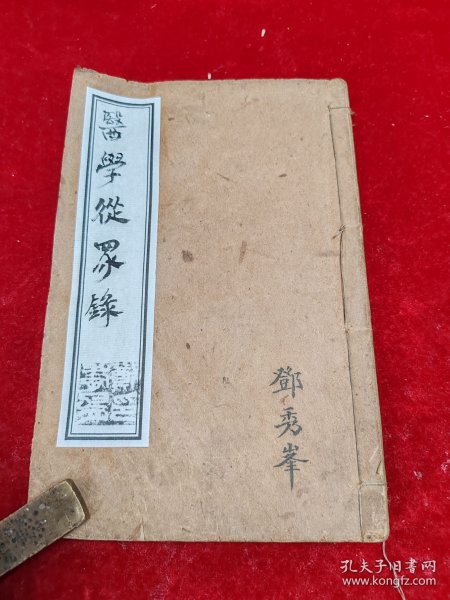 醫學從眾錄
鄧秀峯
孔夫子旧书网
www.kongfz.com